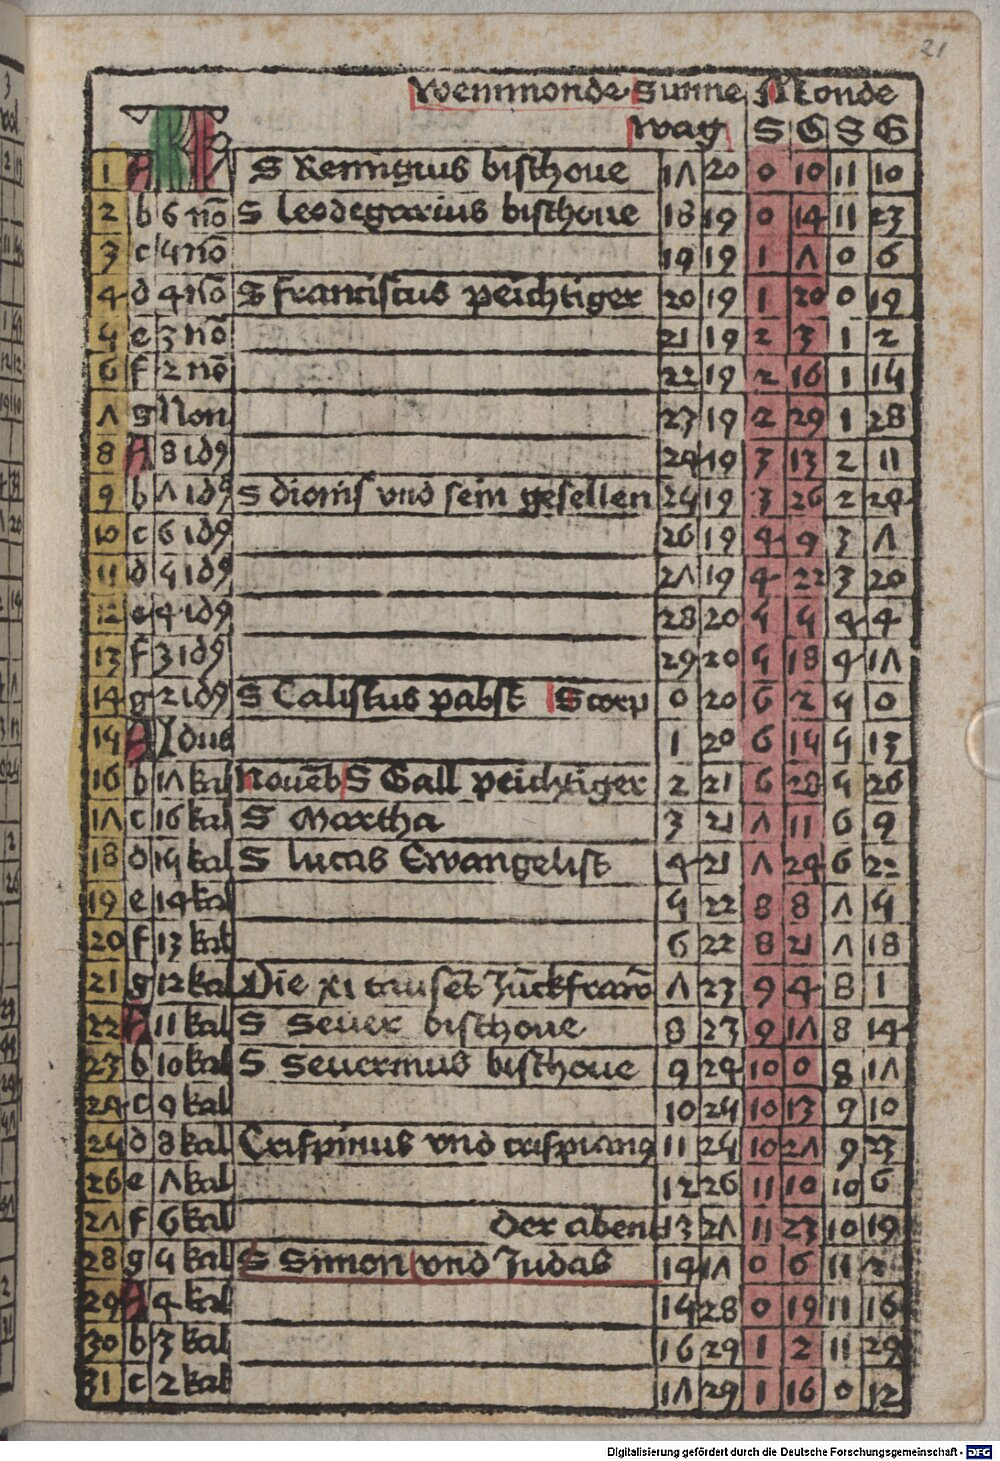 21
Wemmonde Sunne Monde
Wag S G S G
1 A S Remigius bischoue 17 20 0 10 11 10
2 b 6 nō S leodegarius bischoue 18 19 0 14 11 23
3 c 5 nō 19 19 1 7 0 6
4 d 4 nō S franciscus peichtiger 20 19 1 20 0 19
5 e 3 nō 21 19 2 3 1 2
6 f 2 nō 22 19 2 16 1 15
7 g Non 23 19 2 29 1 28
8 A 8 idꝰ 24 19 3 13 2 11
9 b 7 idꝰ S dionis vnd sein gesellen 25 19 3 26 2 24
10 c 6 idꝰ 26 19 4 9 3 7
11 d 5 idꝰ 27 19 4 22 3 20
12 e 4 idꝰ 28 20 5 5 4 4
13 f 3 idꝰ 29 20 5 18 4 17
14 g 2 idꝰ S Calistus pabst Scorp 0 20 6 2 5 0
15 A Idus 1 20 6 15 5 13
16 b 17 kal Nouēb S Gall peichtiger 2 21 6 28 5 26
17 c 16 kal S Martha 3 21 7 11 6 9
18 d 15 kal S lucas Ewangelist 4 21 7 24 6 22
19 e 14 kal 5 22 8 8 7 5
20 f 13 kal 6 22 8 21 7 18
21 g 12 kal Die xi tausēt Jūckfrawō 7 23 9 4 8 1
22 A 11 kal S Seuer bischoue 8 23 9 17 8 14
23 b 10 kal S Seuerinus bischoue 9 24 10 0 8 17
24 c 9 kal 10 25 10 13 9 10
25 d 8 kal Crispinus vnd crispianꝰ 11 25 10 27 9 23
26 e 7 kal 12 26 11 10 10 6
27 f 6 kal der abent 13 27 11 23 10 19
28 g 5 kal S Simon vnd Judas 14 17 0 6 11 2
29 A 4 kal 15 28 0 19 11 16
30 b 3 kal 16 29 1 2 11 29
31 c 2 kal 17 29 1 16 0 12
Digitalisierung gefördert durch die Deutsche Forschungsgemeinschaft - DFG